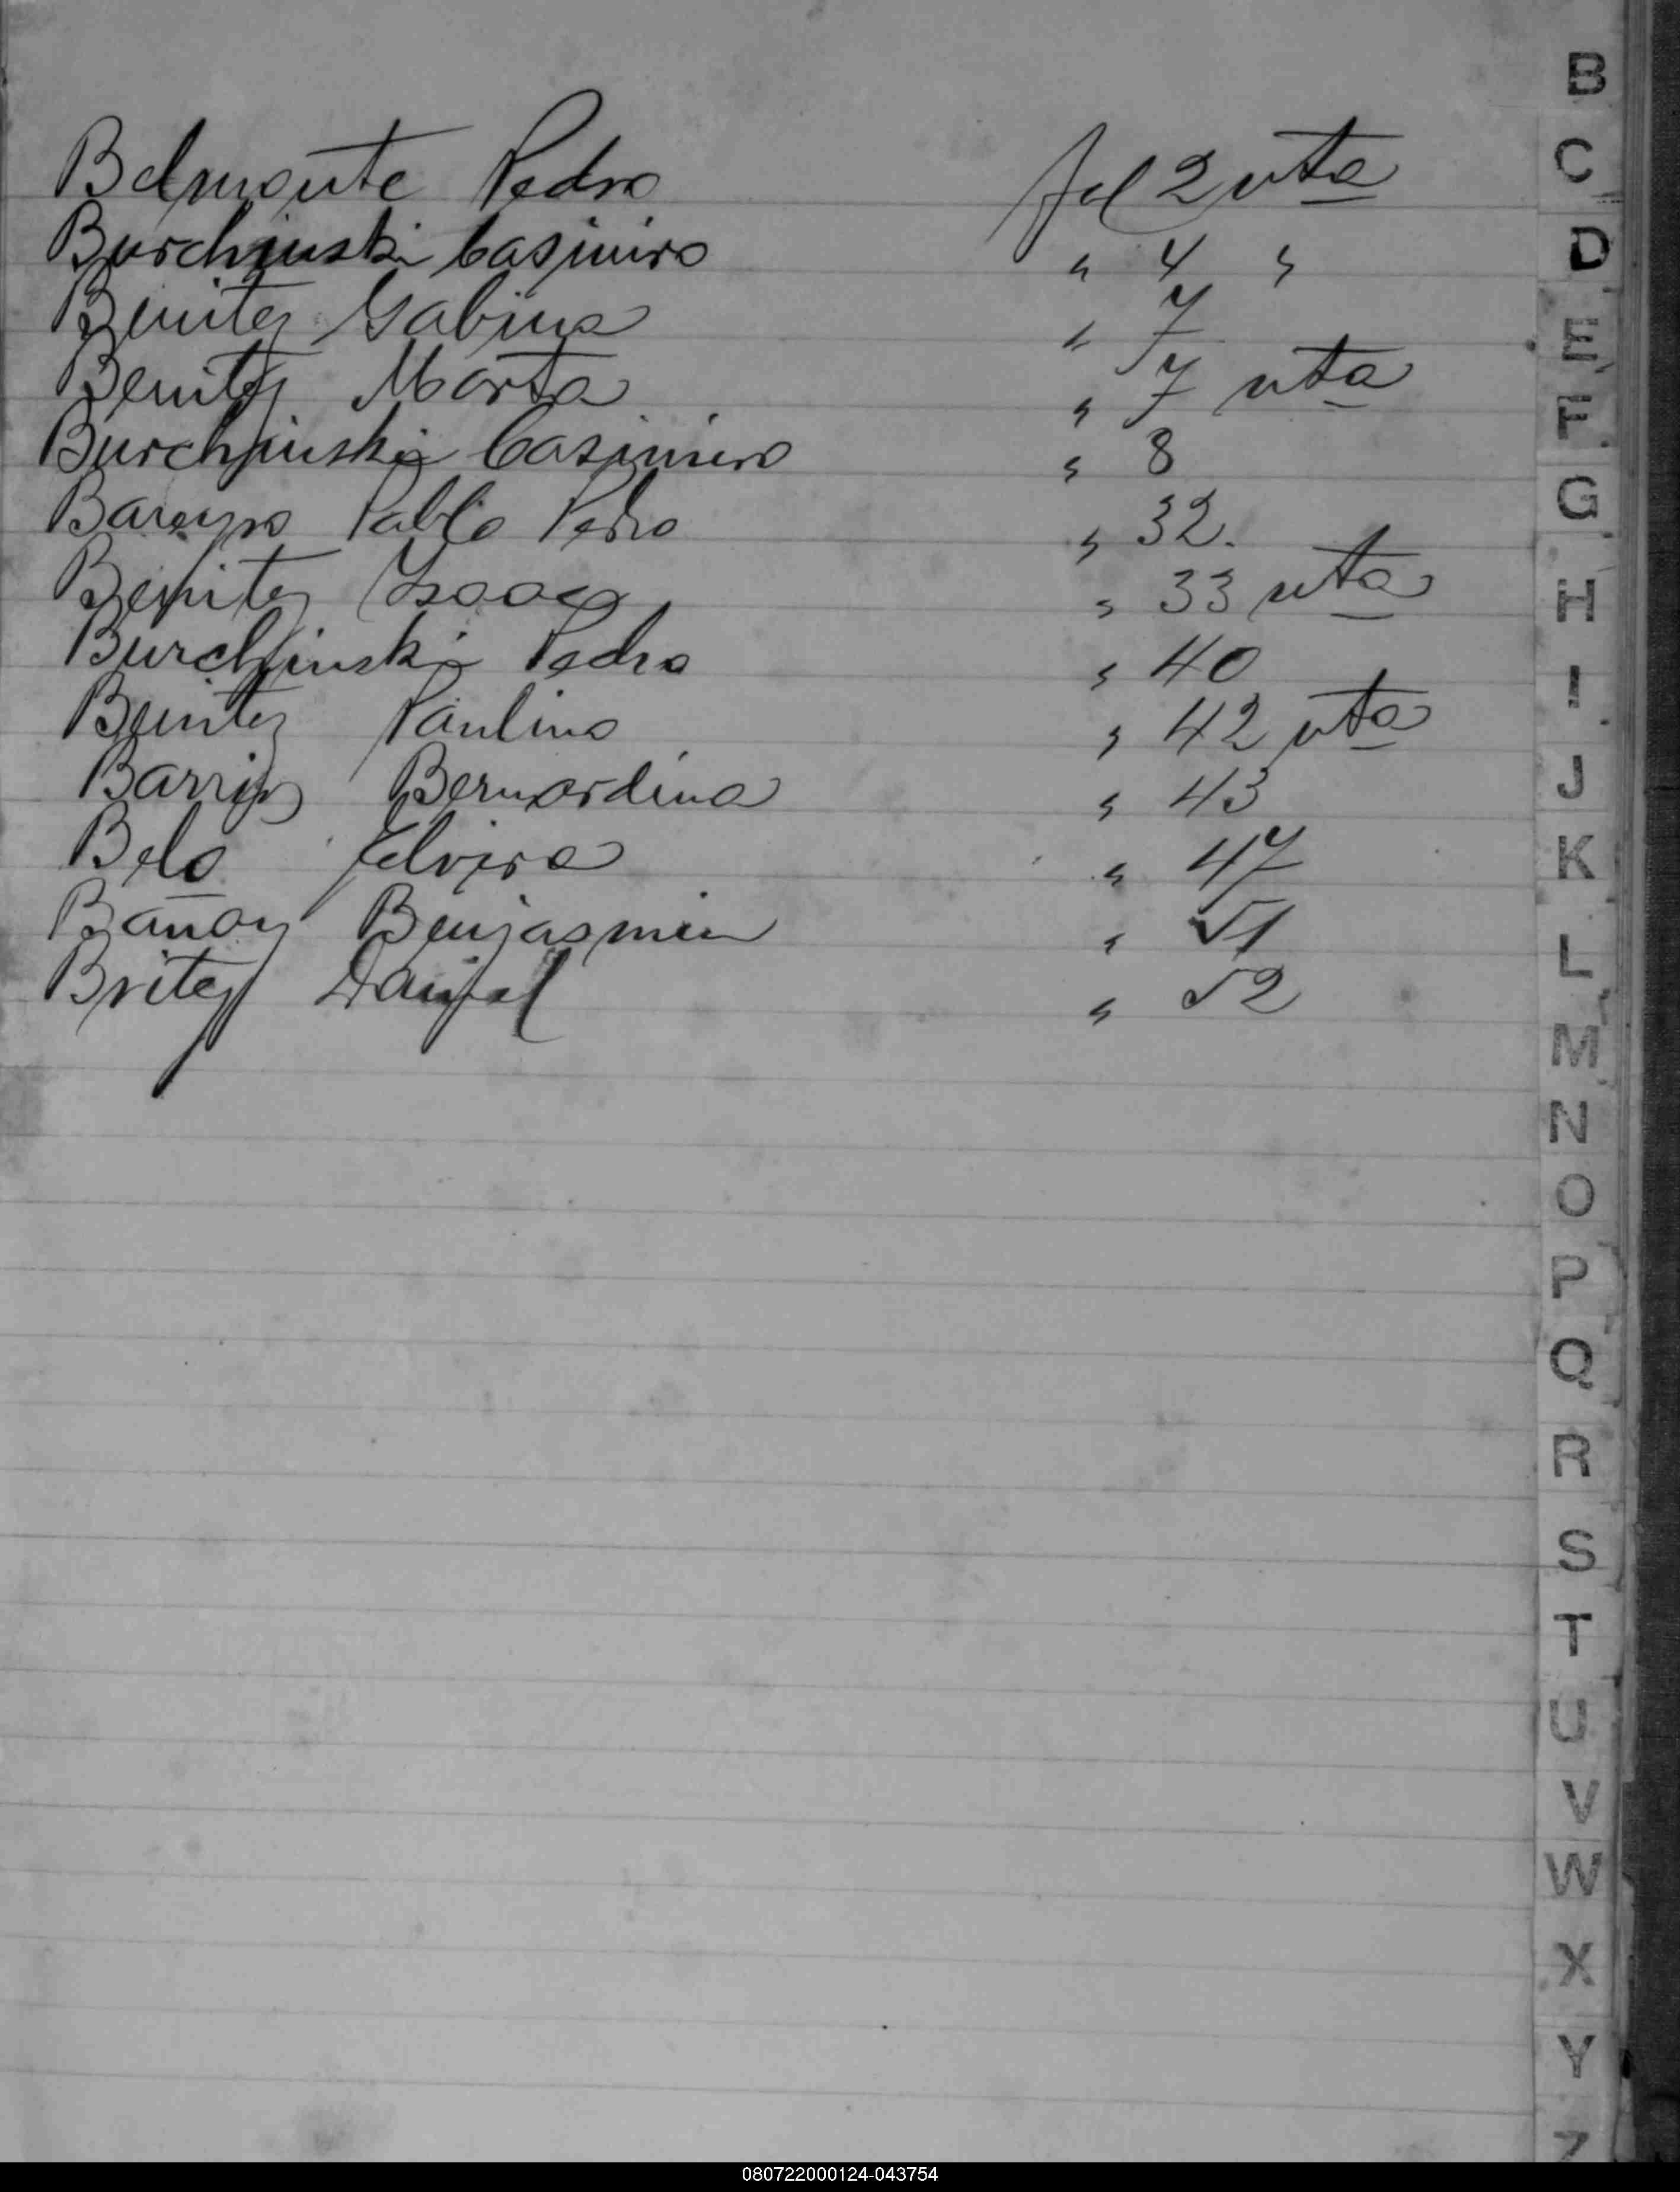 Belmonte Pedro fol 2 vta
Burchinski Casimiro " 4 "
Benitez Gabina " 7
Benitez Marta " 7 vta
Burchinski Casimiro " 8
Pablo Pedro " 32.
Benitez Ysaac " 33 vta
Burchinski Pedro " 40
Benitez Paulino " 42 vta
Barrios Bernardina " 43
Belo Elvira " 47
Bañay Benjasmin " 51
Britez Daniel " 52
B
C
D
E
F
G
H
I
J
K
L
M
N
O
P
Q
R
S
T
U
V
W
X
Y
Z
080722000124-043754